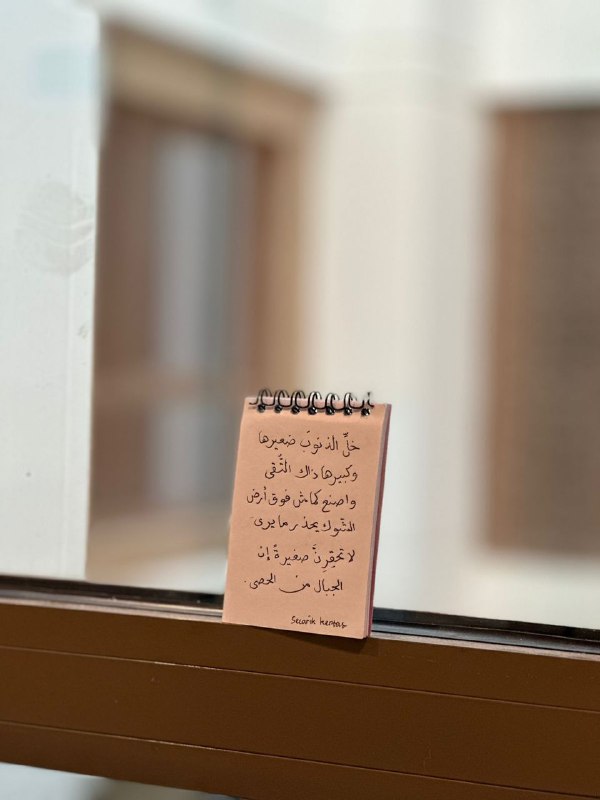 خلِّ الذنوبَ صغيرها
وكبيرها ذاك التُّقى
واصنع كماش فوق أرض
الشّوك يحذر ما يرى
لا تحقِرنَّ صغيرةً إن
الجبال من الحصى.